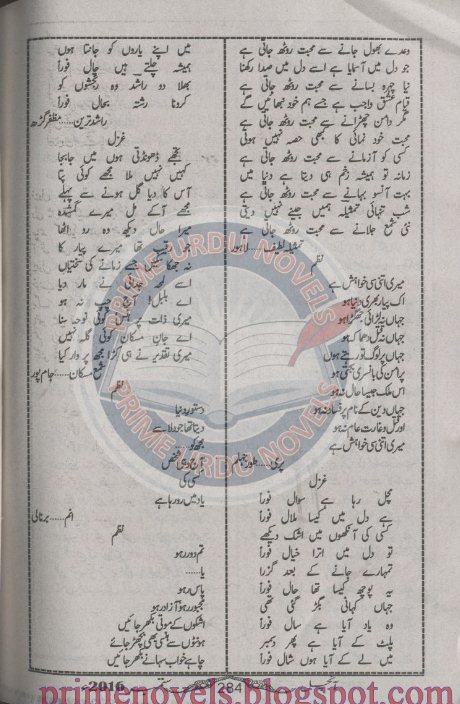 وعدے بھول جانے سے محبت روٹھ جاتی ہے
جو دل میں آ سمایا ہے اسے دل میں صدا رکھنا
نیا چہرہ بسانے سے محبت روٹھ جاتی ہے
قیام عشق واجب ہے جسے ہم خود نبھائیں گے
مگر دامن چھڑانے سے محبت روٹھ جاتی ہے
محبت خود نمائی کا کبھی حصہ نہیں ہوتی
کسی کو آزمانے سے محبت روٹھ جاتی ہے
زمانہ تو ہمیشہ زخم ہی دیتا ہے دنیا میں
بہت آنسو بہانے سے محبت روٹھ جاتی ہے
شب تنہائی تمثیلہ ہمیں جینے نہیں دیتی
نئی شمع جلانے سے محبت روٹھ جاتی ہے
تمثیلہ لطیف لاہور
نظم
میری اتنی سی خواہش ہے
اک پیار بھری دنیا ہو
جہاں نہ لڑائی جھگڑا ہو
جہاں نہ قتل دھماکہ ہو
جہاں پر لوگ تو رہتے ہوں
پر امن کی بانسری بجتی ہو
اس ملک جیسا حال نہ ہو
جہاں دین کے نام پر فساد نہ ہو
اور قتل و غارت عام نہ ہو
میری اتنی سی خواہش ہے
پری......جہلم
غزل
مچل رہا ہے سوال فوراً
ہے دل میں کیسا ملال فوراً
کسی کی آنکھوں میں اشک دیکھے
تو دل میں اترا خیال فوراً
تمہارے جانے کے بعد گزرا
یہ پوچھ کیسا تھا حال فوراً
جہاں کہانی بگڑ گئی تھی
وہ یاد آیا ہے سال فوراً
پلٹ کے آیا ہے پھر دسمبر
میں لے کے آیا ہوں شال فوراً
میں اپنے یاروں کو جانتا ہوں
ہمیشہ چلتے ہیں چال فوراً
بھلا دو راشد وہ رنجشوں کو
کرو نا رشتہ بحال فوراً
راشد ترین......مظفر گڑھ
غزل
تجھے ڈھونڈتی ہوں میں جابجا
کہیں نہیں ملا مجھے کوئی پتا
آس کا دیا گل ہونے سے پہلے
مجھے آ کے مل میرے گمشدہ
میرا حال دیکھ وہ رو اٹھا
جو رقیب تھا میرے پیار کا
نہ جھکا سکیں جسے زمانے کی تختیاں
اسے نے مار دیا
اے بلبل! نہ ہو
میری ذات پر کوئی نوحہ بنا
اے جان مسکان کوئی گلہ نہیں
میری تقدیر نے ہی کڑا مجھ پر وار کیا
شمع مسکان......جام پور
نظم
دستور دنیا
دیتا تھا جو دلاسے
مجھ کو.....
آج وہی شخص
کسی کی
یاد میں رو رہا ہے
انعم......برنالی
نظم
تم دور ہو
یا.....
پاس رہو
مجبور ہو آزاد ہو
اشکوں کے موتی بکھر جائیں
ہونٹوں سے ہنسی بھی بچھڑ جائے
چاہے خواب سہانے بکھر جائیں
2016
284
PRIME URDU NOVELS
PRIME URDU NOVELS
primenovels.blogspot.com